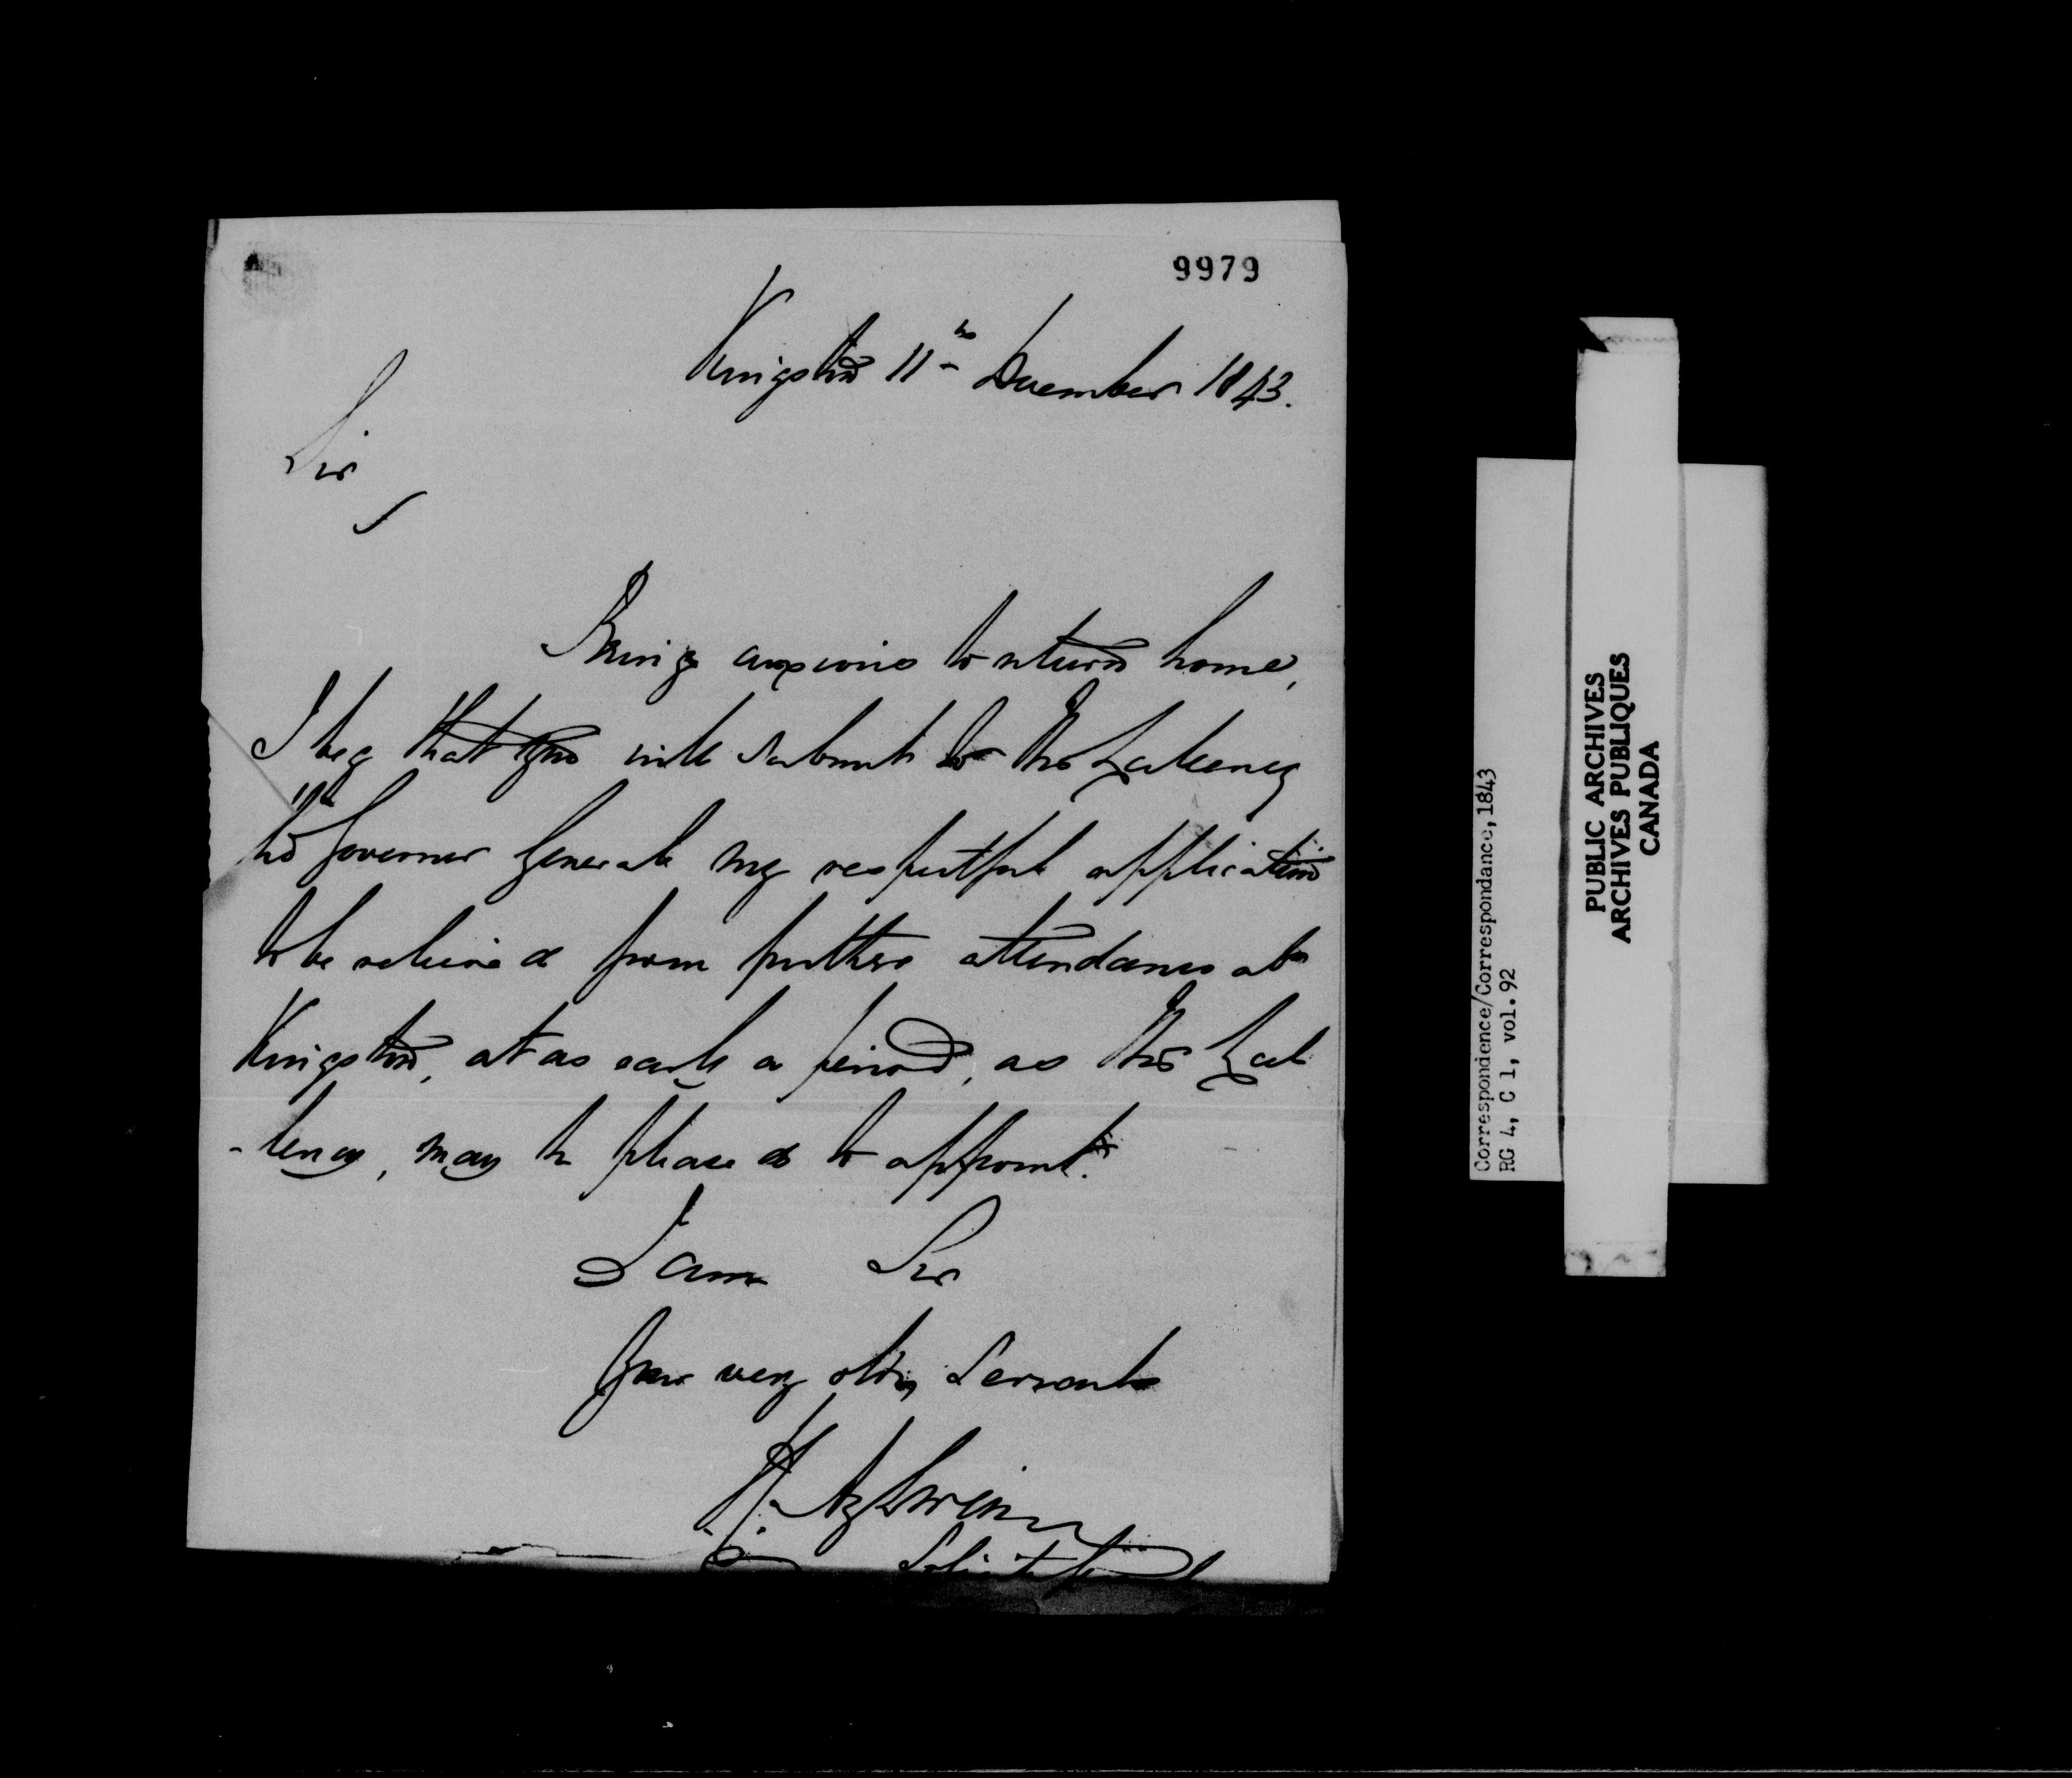 9979
Kingston 11th December 1843.
Sir
Being anxious to return home,
I beg that you will submit to His Excellency
the Governor General my respectful application
to be relieved from further attendance at
Kingston, at as early a period, as His Excel
-lency, may be pleased to appoint.
I am Sir
Your very obt Servant
Solicitor
Correspondence/Correspondance, 1843
RG 4, C 1, vol. 92
PUBLIC ARCHIVES
ARCHIVES PUBLIQUES
CANADA